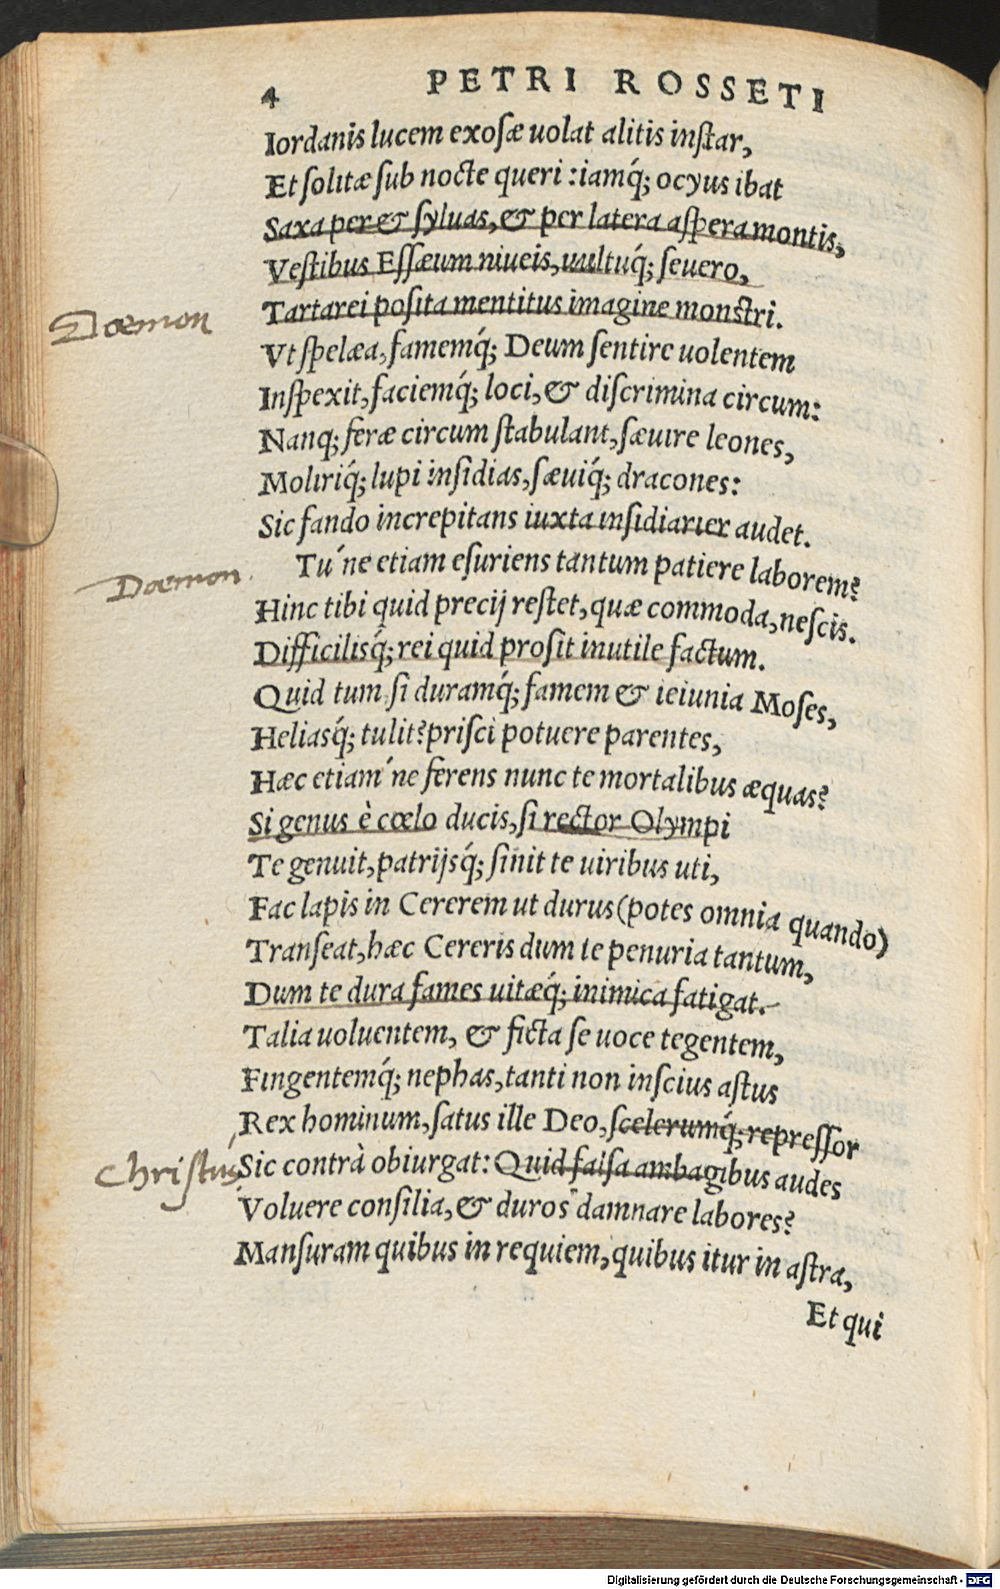 4 PETRI ROSSETI
Iordanis lucem exosæ uolat alitis instar,
Et solitæ sub nocte queri : iamq́; ocyus ibat
Saxa per & syluas, & per latera aspera montis,
Vestibus Essæum niueis, uultuq́; seuero,
Tartarei posita mentitus imagine monstri.
Dæmon
Vt spelæa, famemq́; Deum sentire uolentem
Inspexit, faciemq́; loci, & discrimina circum:
Nanq; feræ circum stabulant, sæuire leones,
Moliriq́; lupi insidias, sæuiq́; dracones:
Sic fando increpitans iuxta insidiarier audet.
Tú ne etiam esuriens tantum patiere laborem?
Dæmon.
Hinc tibi quid precij restet, quæ commoda, nescis.
Difficilisq́; rei quid prosit inutile factum.
Quid tum si duramq́; famem & ieiunia Moses,
Heliasq́; tulit? prisci potuere parentes,
Hæc etiam ́ne ferens nunc te mortalibus æquas?
Si genus è cœlo ducis, si rector Olympi
Te genuit, patrijsq́; sinit te uiribus uti,
Fac lapis in Cererem ut durus (potes omnia quando)
Transeat, hæc Cereris dum te penuria tantum,
Dum te dura fames uitæq́; inimica fatigat.
Talia uoluentem, & ficta se uoce tegentem,
Fingentemq́; nephas, tanti non inscius astus
Rex hominum, satus ille Deo, scelerumq́; repressor
Christus
Sic contrà obiurgat: Quid falsa ambagibus audes
Voluere consilia, & duros damnare labores?
Mansuram quibus in requiem, quibus itur in astra,
Et qui
Digitalisierung gefördert durch die Deutsche Forschungsgemeinschaft - DFG